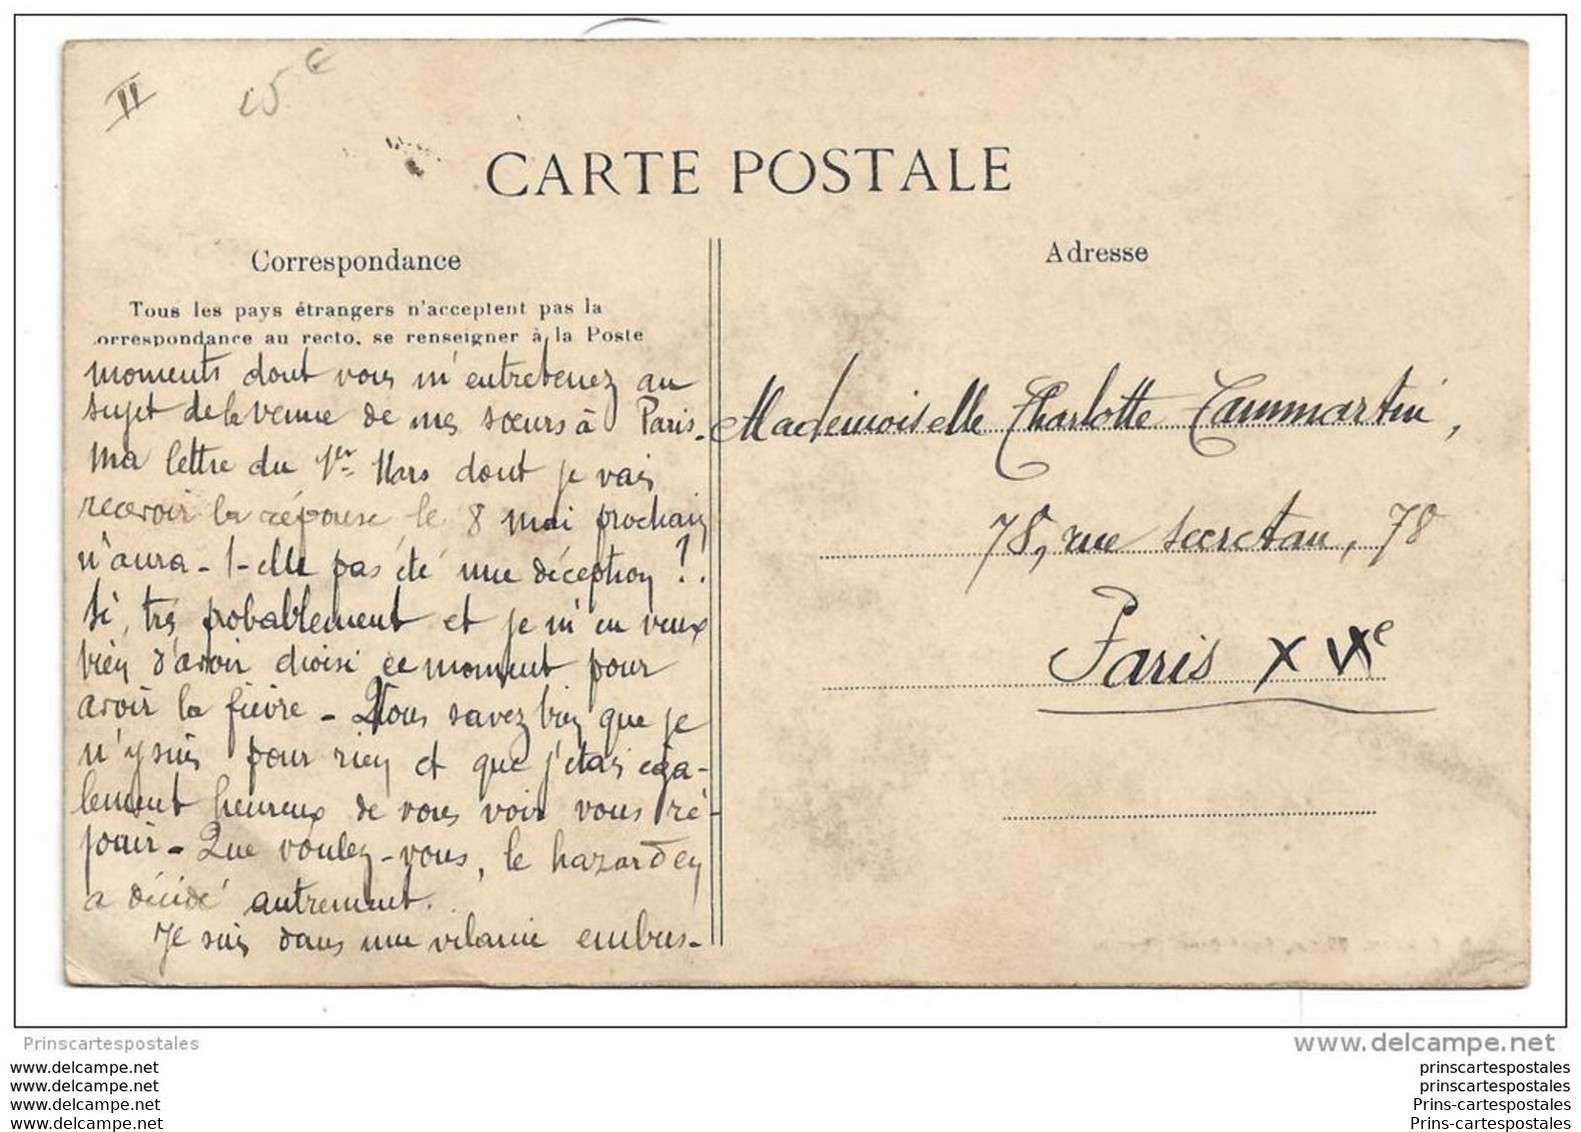 II
15 €
CARTE POSTALE
Correspondance
Tous les pays étrangers n'acceptent pas la
orrespondance au recto, se renseigner à la Poste
moments dont vous m'entretenez au
sujet de la venue de mes sœurs à Paris.
Ma lettre du 1er Mars dont je vais
recevoir la réponse le 8 mai prochain
n'aura-t-elle pas été une déception ?.
Si, très probablement et je m'en veux
bien d'avoir choisi ce moment pour
avoir la fièvre - Vous savez bien que je
n'y suis pour rien et que j'étais éga-
lement heureux de vous voir vous ré-
jouir - Que voulez-vous, le hazard en
a décidé autrement.
Je suis dans une vilaine embus-
Adresse
Mademoiselle Charlotte Cammartin,
78, rue Secretan, 78
Paris XIXe
Prinscartespostales
www.delcampe.net
www.delcampe.net
www.delcampe.net
www.delcampe.net
www.delcampe.net
prinscartespostales
prinscartespostales
Prins-cartespostales
Prins-cartespostales